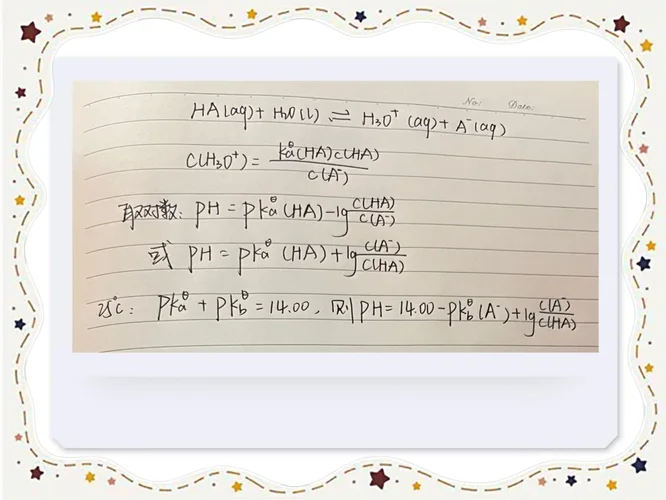 No: Date:
HA(aq) + H₂O(l) ⇌ H₃O⁺(aq) + A⁻(aq)
C(H₃O⁺) = Ka^θ(HA)c(HA) / c(A⁻)
取对数: pH = pKa^θ(HA) - lg c(HA)/c(A⁻)
或 pH = pKa^θ(HA) + lg c(A⁻)/c(HA)
25℃: pKa^θ + pKb^θ = 14.00, 则 pH = 14.00 - pKb^θ(A⁻) + lg c(A⁻)/c(HA)